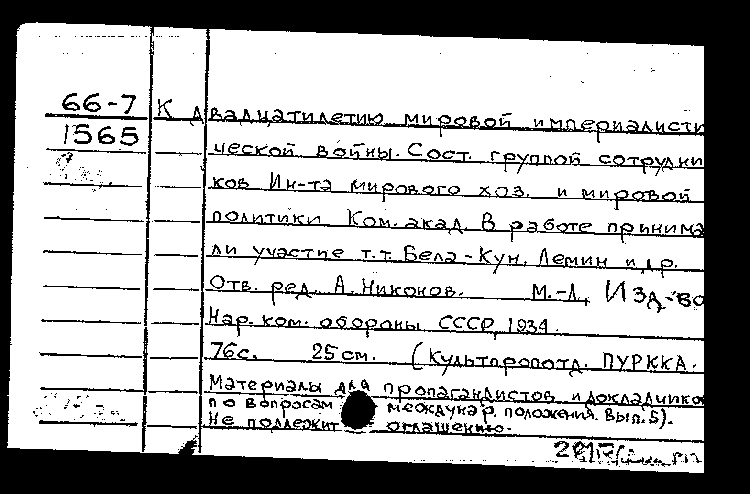 66-7
1565
К двадцатилетию мировой империалисти
ческой войны. Сост. группой сотрудни
ков Ин-та мирового хоз. и мировой
политики Ком. акад. В работе принима
ли участие т.т. Бела-Кун, Лемин и др.
Отв. ред. А. Никонов. М.-Л., Изд-во
Нар. ком. обороны СССР, 1934.
76с. 25см. (Культпропотд. ПУРККА.
Материалы для пропагандистов и докладчиков
по вопросам междунар. положения. Вып. 5).
Не подлежит оглашению.